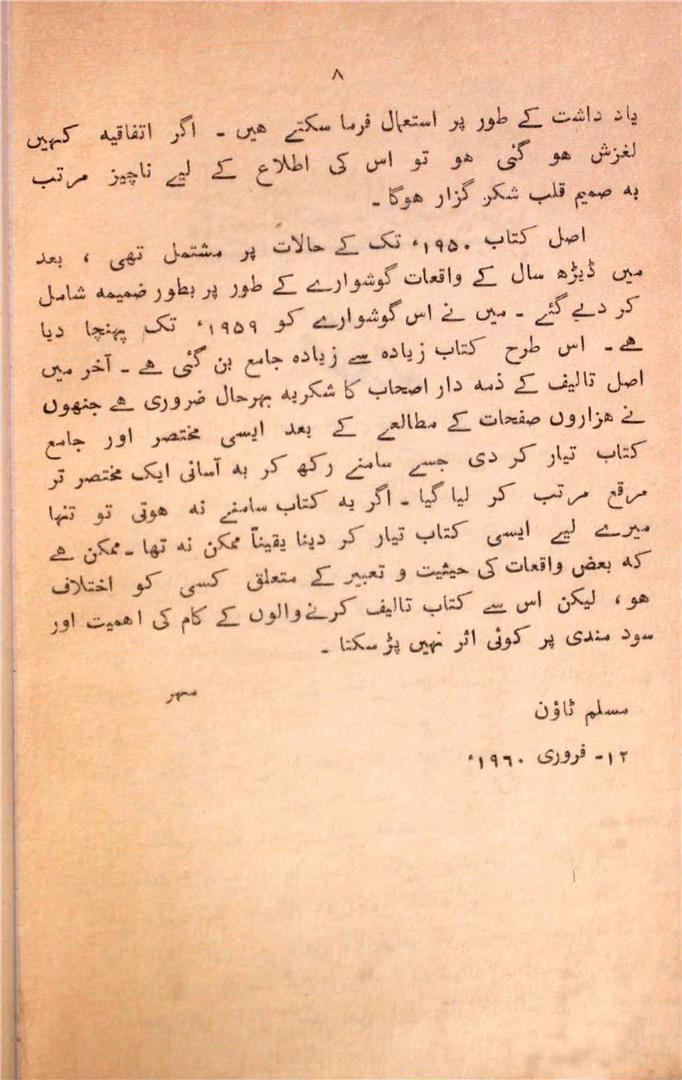 ۸
یاد داشت کے طور پر استعمال فرما سکتے ھیں ۔ اگر اتفاقیہ کہیں
لغزش ھو گئی ھو تو اس کی اطلاع کے لیے ناچیز مرتب
بہ صمیم قلب شکر گزار ھوگا ۔
اصل کتاب ۱۹۵۰ء تک کے حالات پر مشتمل تھی ، بعد
میں ڈیڑھ سال کے واقعات گوشوارے کے طور پر بطور ضمیمہ شامل
کر دیے گئے ۔ میں نے اس گوشوارے کو ۱۹۵۹ء تک پہنچا دیا
ہے ۔ اس طرح کتاب زیادہ سے زیادہ جامع بن گئی ہے ۔ آخر میں
اصل تالیف کے ذمہ دار اصحاب کا شکریہ بہرحال ضروری ہے جنھوں
نے ھزاروں صفحات کے مطالعے کے بعد ایسی مختصر اور جامع
کتاب تیار کر دی جسے سامنے رکھ کر بہ آسانی ایک مختصر تر
مرقع مرتب کر لیا گیا ۔ اگر یہ کتاب سامنے نہ ھوتی تو تنہا
میرے لیے ایسی کتاب تیار کر دینا یقیناً ممکن نہ تھا ۔ ممکن ہے
کہ بعض واقعات کی حیثیت و تعبیر کے متعلق کسی کو اختلاف
ھو ، لیکن اس سے کتاب تالیف کرنے والوں کے کام کی اھمیت اور
سود مندی پر کوئی اثر نہیں پڑ سکتا ۔
مہر
مسلم ٹاؤن
۱۲- فروری ۱۹۶۰ء